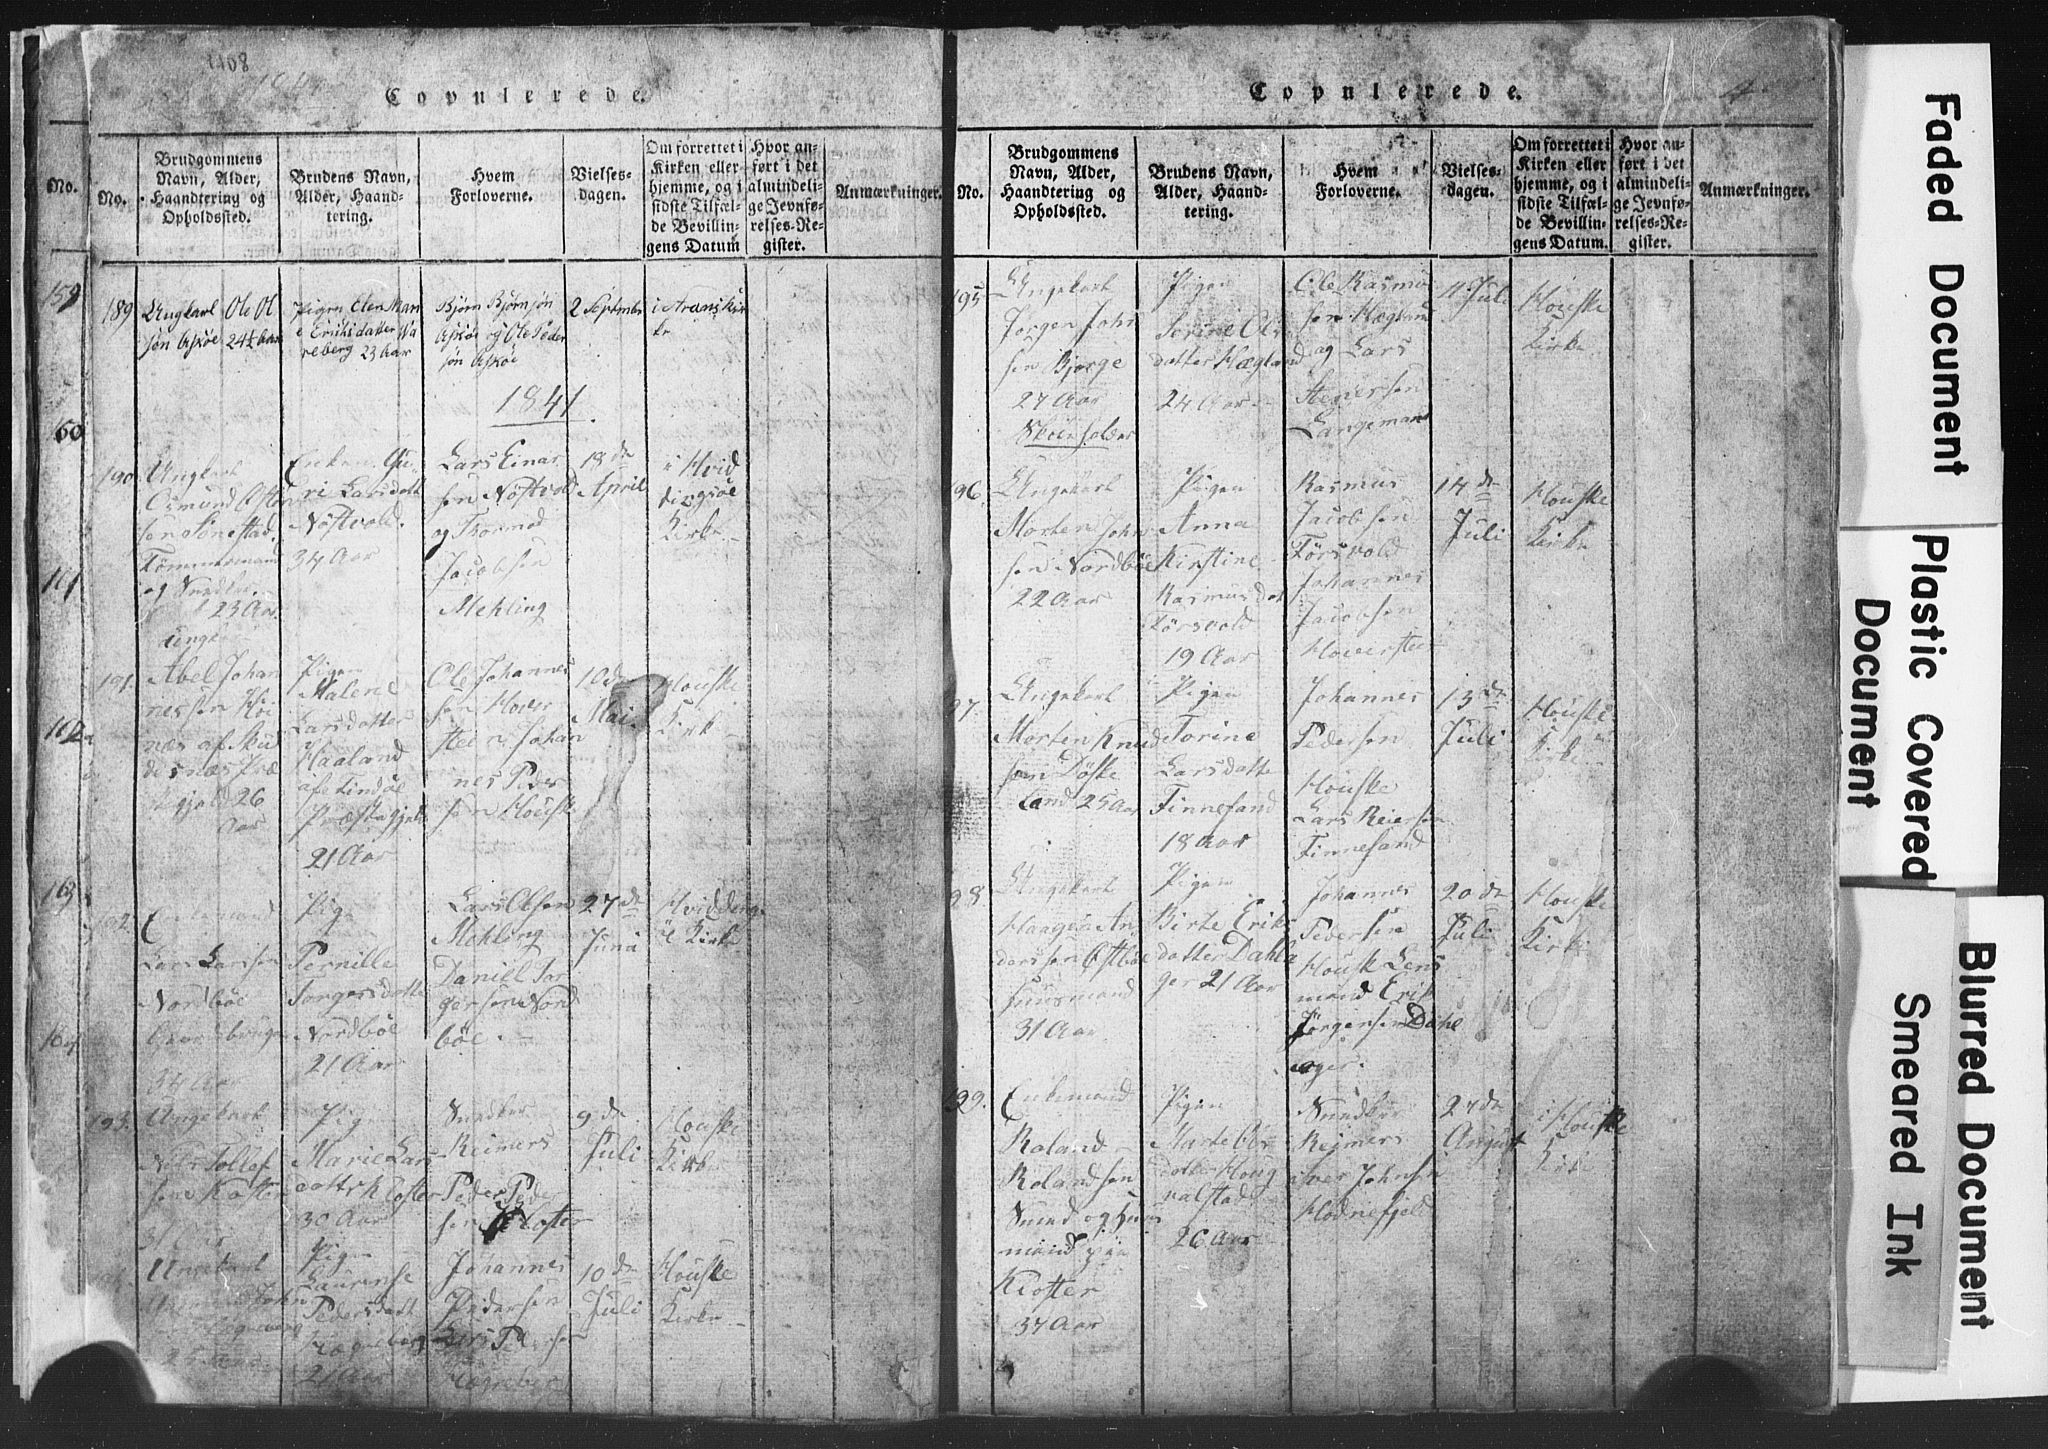 1108
Copulerede.
No.
No.
Brudgommens
Navn, Alder,
Haandtering og
Opholdssted.
Brudens Navn,
Alder, Haand-
tering.
Hvem
Forloverne.
Vielses-
dagen.
Om forrettet i
Kirken eller
hjemme, og i
sidste Tilfæl-
de Bevillin-
gens Datum
Hvor an-
ført i det
almindeli-
ge Jevnfø-
relses-Re-
gister.
Anmærkninger.
159
160
161
162
163
164
189
Ungkarl Ole Ol
søn Askøe 24½ Aar
Pigen Elen Mari
e Eriksdatter Va
reberg 23 Aar
Bjørn Bjørnsøn
Askøe og Ole Peder
søn Askøe
2 September
i Strands Kir
ke
1841.
190.
Ungkarl
Osmund Osten
sen Sønestad.
Tømmermand
og Snedker.
23 Aar.
Enken Gu-
ri Larsdatt
Nøstvold.
34 Aar
Lars Einar
sen Nøstvold
og Tormod
Jacobsen
Mehling
18 de
April
i Hvid
dingsöe
Kirke
191.
Ungk
Abel Johan
nessen Høi
næs af Skud
desnæs Præ
stgjeld 26
Aar
Pigen
Malene
Larsdatter
Haaland
af Findöe
Præstegjeld
21 Aar
Ole Johannes
sen Hover
steen Johan
nes Peder
sen Housk
10 de
Mai.
Houske
Kirke
192.
Enkemand
Lars Larsen
Nordböe
Gaardbruger
34 Aar
Pigen
Pernille
Torgersdatte
Nordböe
21 Aar
Lars Olsen
Mehling
Daniel Tor
gersen Nord
böe.
27 de
Juni
Hvidding
öe Kirke
193.
Ungekarl
Nils Tollef
sen Koster
31 Aar
Pigen
Marie Lars
datt Kloster
30 Aar
Snedker
Reimers
Peder Peder
sen Kloster
9 de
Juli
Houske
Kirke
Ungekarl
25 Aar
Pigen
Laurense
Pedersdatt
Hægreberg
21 Aar
Johannes
Pedersen
Lars Peder sen
Hægreber
10 de
Juli
Houske
Kirke
Copulerede.
4.
No.
Brudgommens
Navn, Alder,
Haandtering og
Opholdssted.
Brudens Navn,
Alder, Haand-
tering.
Hvem
Forloverne.
Vielses-
dagen.
Om forrettet i
Kirken eller
hjemme, og i
sidste Tilfæl-
de Bevillin-
gens Datum.
Hvor an-
ført i det
almindeli-
ge Jevnfø-
relses-Re-
gister.
Anmærkninger.
195
Ungekarl
Jørgen John
sen Bjørge
27 Aar
Skoleholder
Pigen
Serine Ols
datter Hægland
24 Aar
Ole Rasmu
sen Hægland
og Lars
Stenersen
Langeman
11 Juli
Houske
Kirke
196.
Ungekarl
Morten John
sen Nordböe
22 Aar
Pigen
Anna
Kirstine
Rasmusdat
Førsvold
19 Aar
Rasmus
Jacobsen
Førsvold
Johannes
Jacobsen
Hoversteen
14 de
Juli
Houske
Kirke
97.
Ungekarl
Morten Knud
sen Døske
land 25 Aar
Pigen
Torine
Larsdatte
Finnesand
18 Aar
Johannes
Pedersen
Houske
Lars Reiersen
Finnesand
13 de
Juli
Houske
Kirke
98
Ungekarl
Haagen An
dersen Østböe
Huusmand
31 Aar
Pigen
Birte Erik
datter Dahla
ger 21 Aar
Johannes
Pedersen
Housk Lens
mand Erik
Jørgensen Dahl
ager.
20 de
Juli
Houske
Kirke
199.
Enkemand
Roland
Rolandsen
Smed og Huus
mand paa
Kloster
37 Aar
Pigen
Marte Ols
datter Houg
valstad
26 Aar
Snedker
Reimers
Iver Johnsen
Hodnefjeld
27 de
August
Houske
Kirke
Faded Document
Plastic Covered
Document
Blurred Document
Smeared Ink